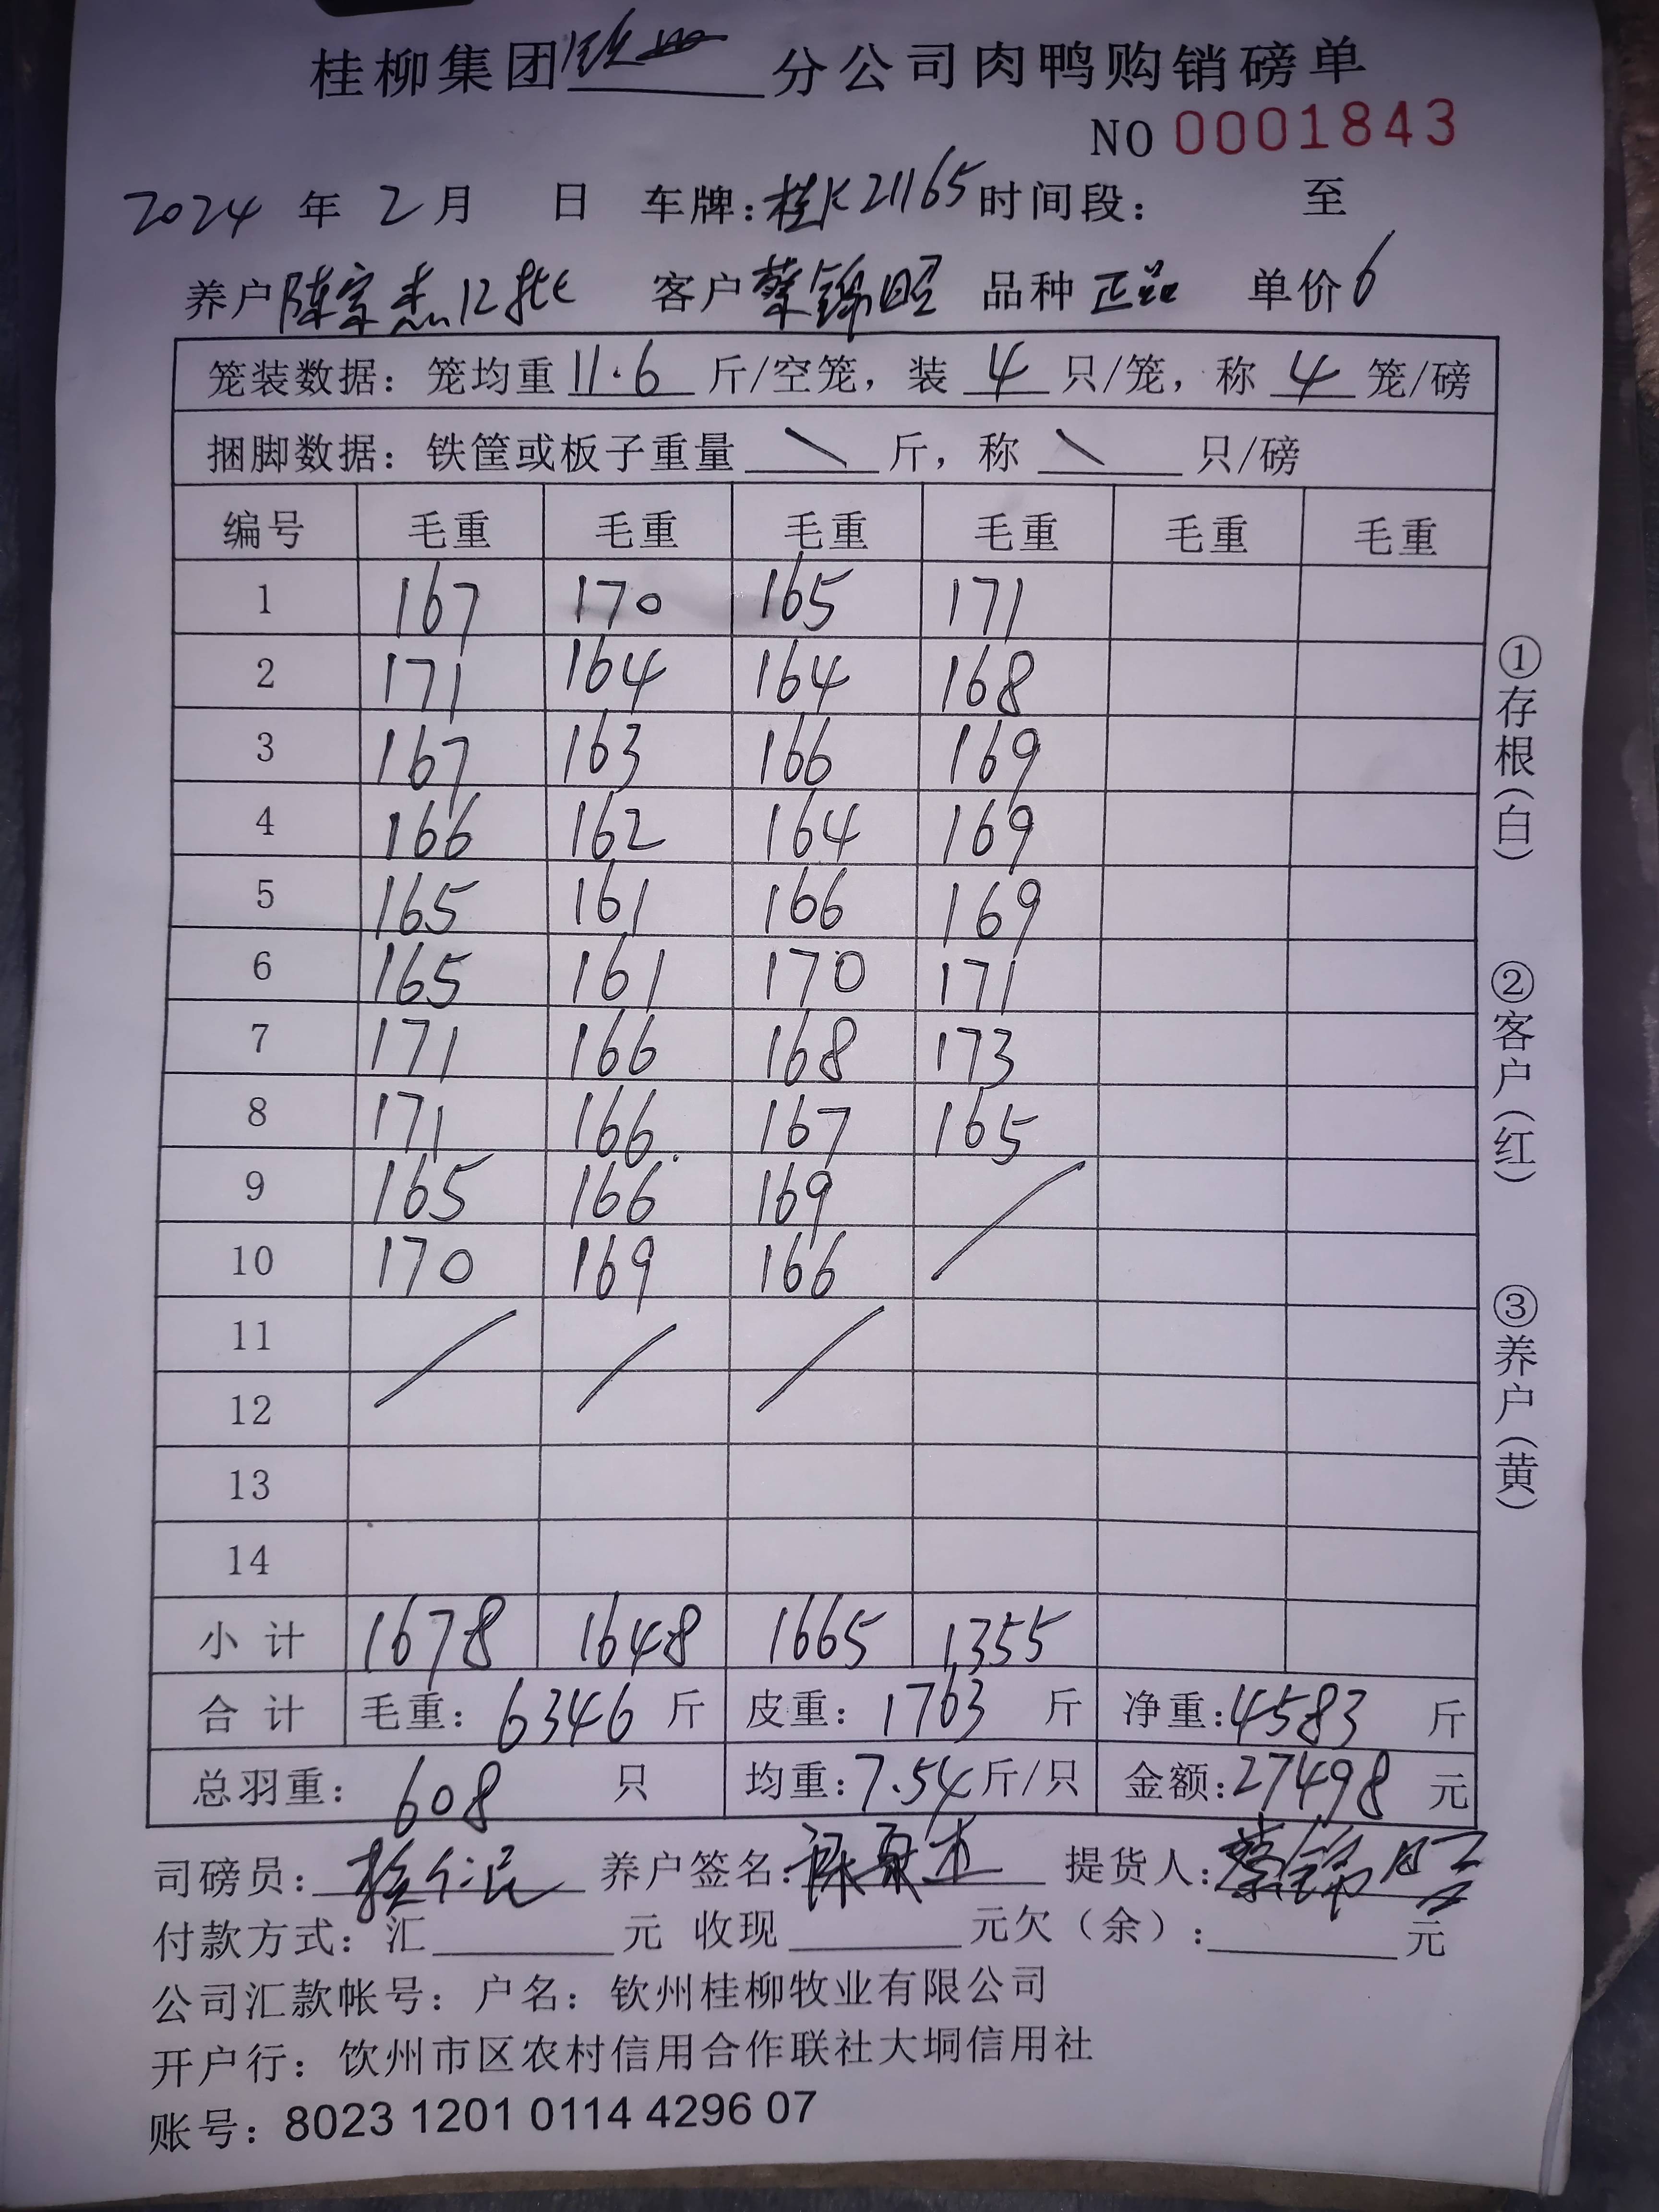 桂柳集团钦州分公司肉鸭购销磅单
NO 0001843
2024 年 2 月 日 车牌：桂K21165 时间段： 至
养户 陈家杰12批 客户 蔡锦昭 品种 正品 单价 6
笼装数据：笼均重 11.6 斤/空笼，装 4 只/笼，称 4 笼/磅
捆脚数据：铁筐或板子重量 \ 斤，称 \ 只/磅
编号 毛重 毛重 毛重 毛重 毛重 毛重
1 167 170 165 171
2 171 164 164 168
3 167 163 166 169
4 166 162 164 169
5 165 161 166 169
6 165 161 170 171
7 171 166 168 173
8 171 166. 167 165
9 165 166 169 /
10 170 169 166
11 / / /
12
13
14
小计 1678 1648 1665 1355
合计 毛重：6346 斤 皮重：1763 斤 净重：4583 斤
总羽重：608 只 均重：7.54 斤/只 金额：27498 元
司磅员： 养户签名： 提货人：蔡锦昭
付款方式：汇 元 收现 元欠（余）： 元
公司汇款帐号：户名：钦州桂柳牧业有限公司
开户行：钦州市区农村信用合作联社大垌信用社
账号：8023 1201 0114 4296 07
①存根（白）
②客户（红）
③养户（黄）